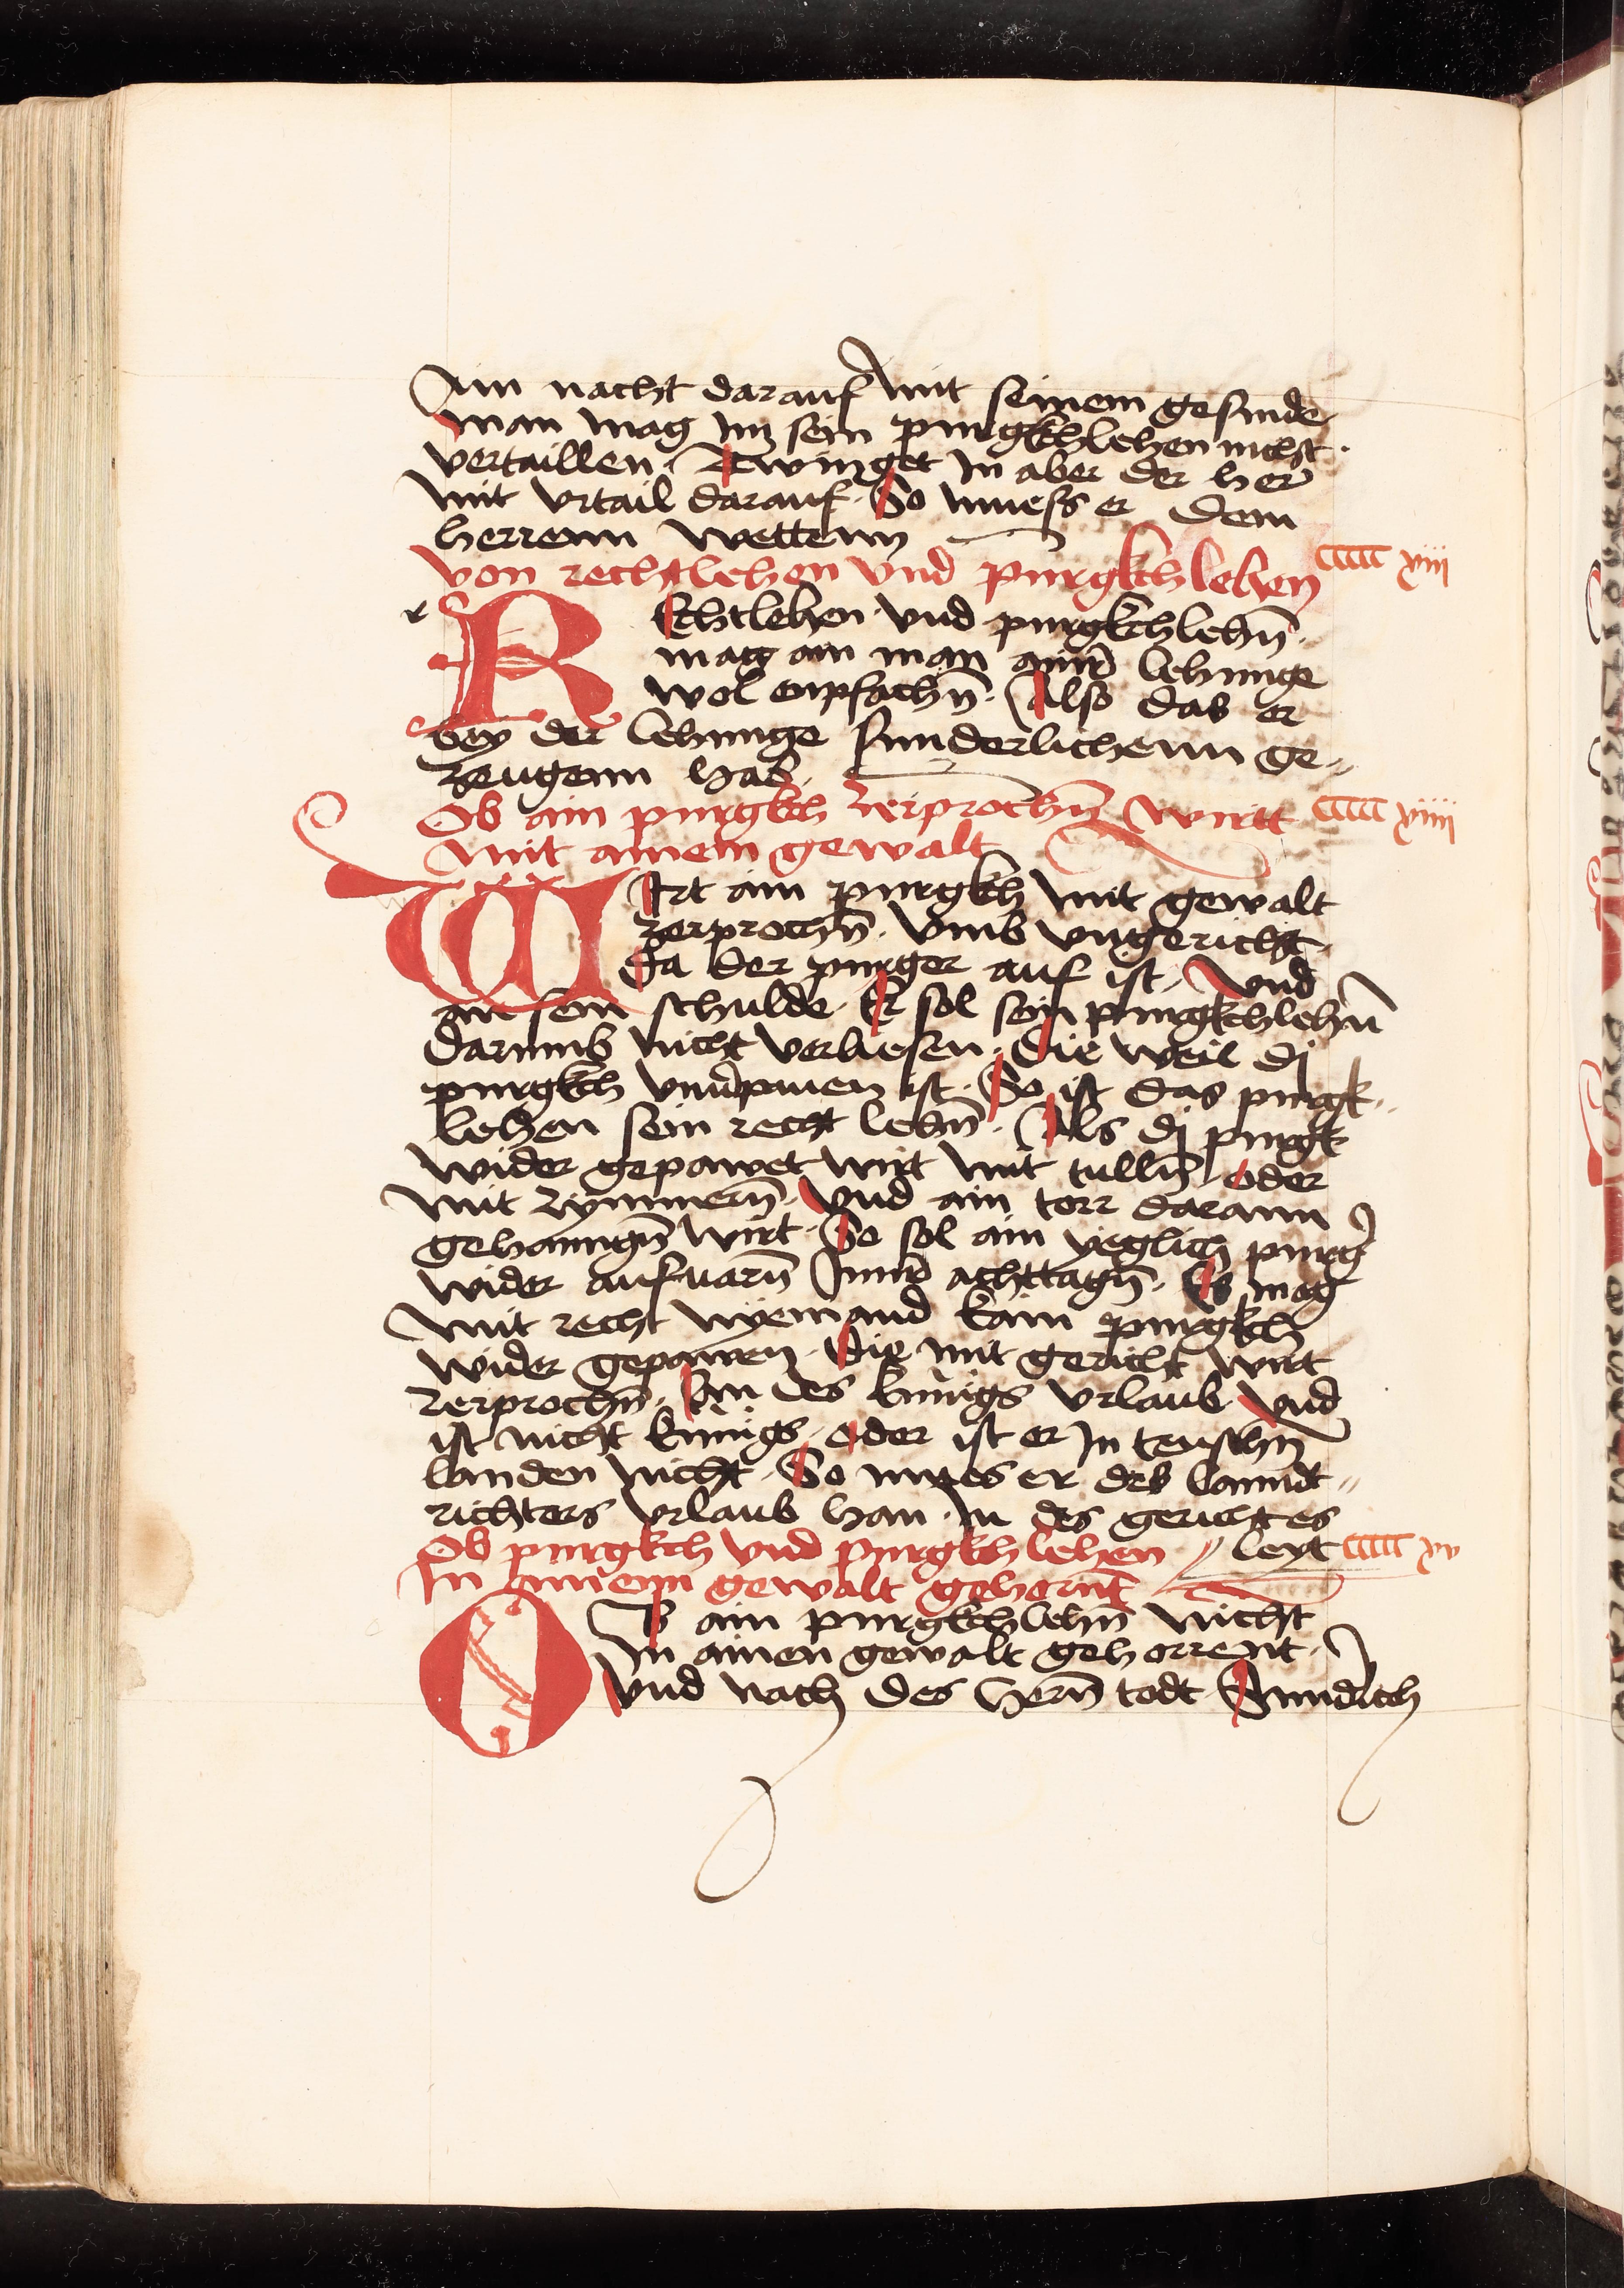 Ain nacht darauf mit seinem gesinde
man mag im sein purgkchlehen nicht·
vertaillen· Zwinget in aber der herr
mit vrtail darauf· So muess er dem
herrenn wettenn
Von rechtlehen vnd purgkchlehen ccccc xiij
r
REchtlehen vnd purgkchlehn̄·
mag ain man ainr̄ lehnnge
wol enpfachn̄· Also das er
bey der lehnnge sunderlichenn ge„
zeugenn hab·
Ob ain purgkch zerprochn̄ wirtt ccccc xiiij
mit ainem gewalt
WIrt ain purgkch mit gewalt
zerprochn̄· vmb vngericht·
da der purger auf ist· vnd
an sein schulde· Er sol sein purgkchlehn̄
darumb nicht verliesen· Die weil dj
purgkch vnuerpauen ist· So ist das purgk„
lehen sein recht lehn̄· Als dj purgk
wider gepawet wirt mit tulln̄ oder
mit zymmern̄· vnd ain torr darann
gehanngn̄ wirt· So sol ain yeglich purger
wider aufuarn̄ Innr̄ achttagn̄· Es mag
mit recht nyemand kain purgkch
wider gepawen· Die mit gericht wirt
zerprochn̄· An des kunigs vrlaub· vnd
ist nicht kunigs· oder ist er In teuschn̄
landen nicht· So mues er des lanndt„
richters vrlaub han· In des gerichtes
Ob purgkch vnd purgkchlehen // leyt ccccc xv
In ainem gewalt gehornt
OB ain purgkchlehn̄ nicht
In ainen gewalt gehorrent·
vnd nach des hern̄ todt· Sunderlich